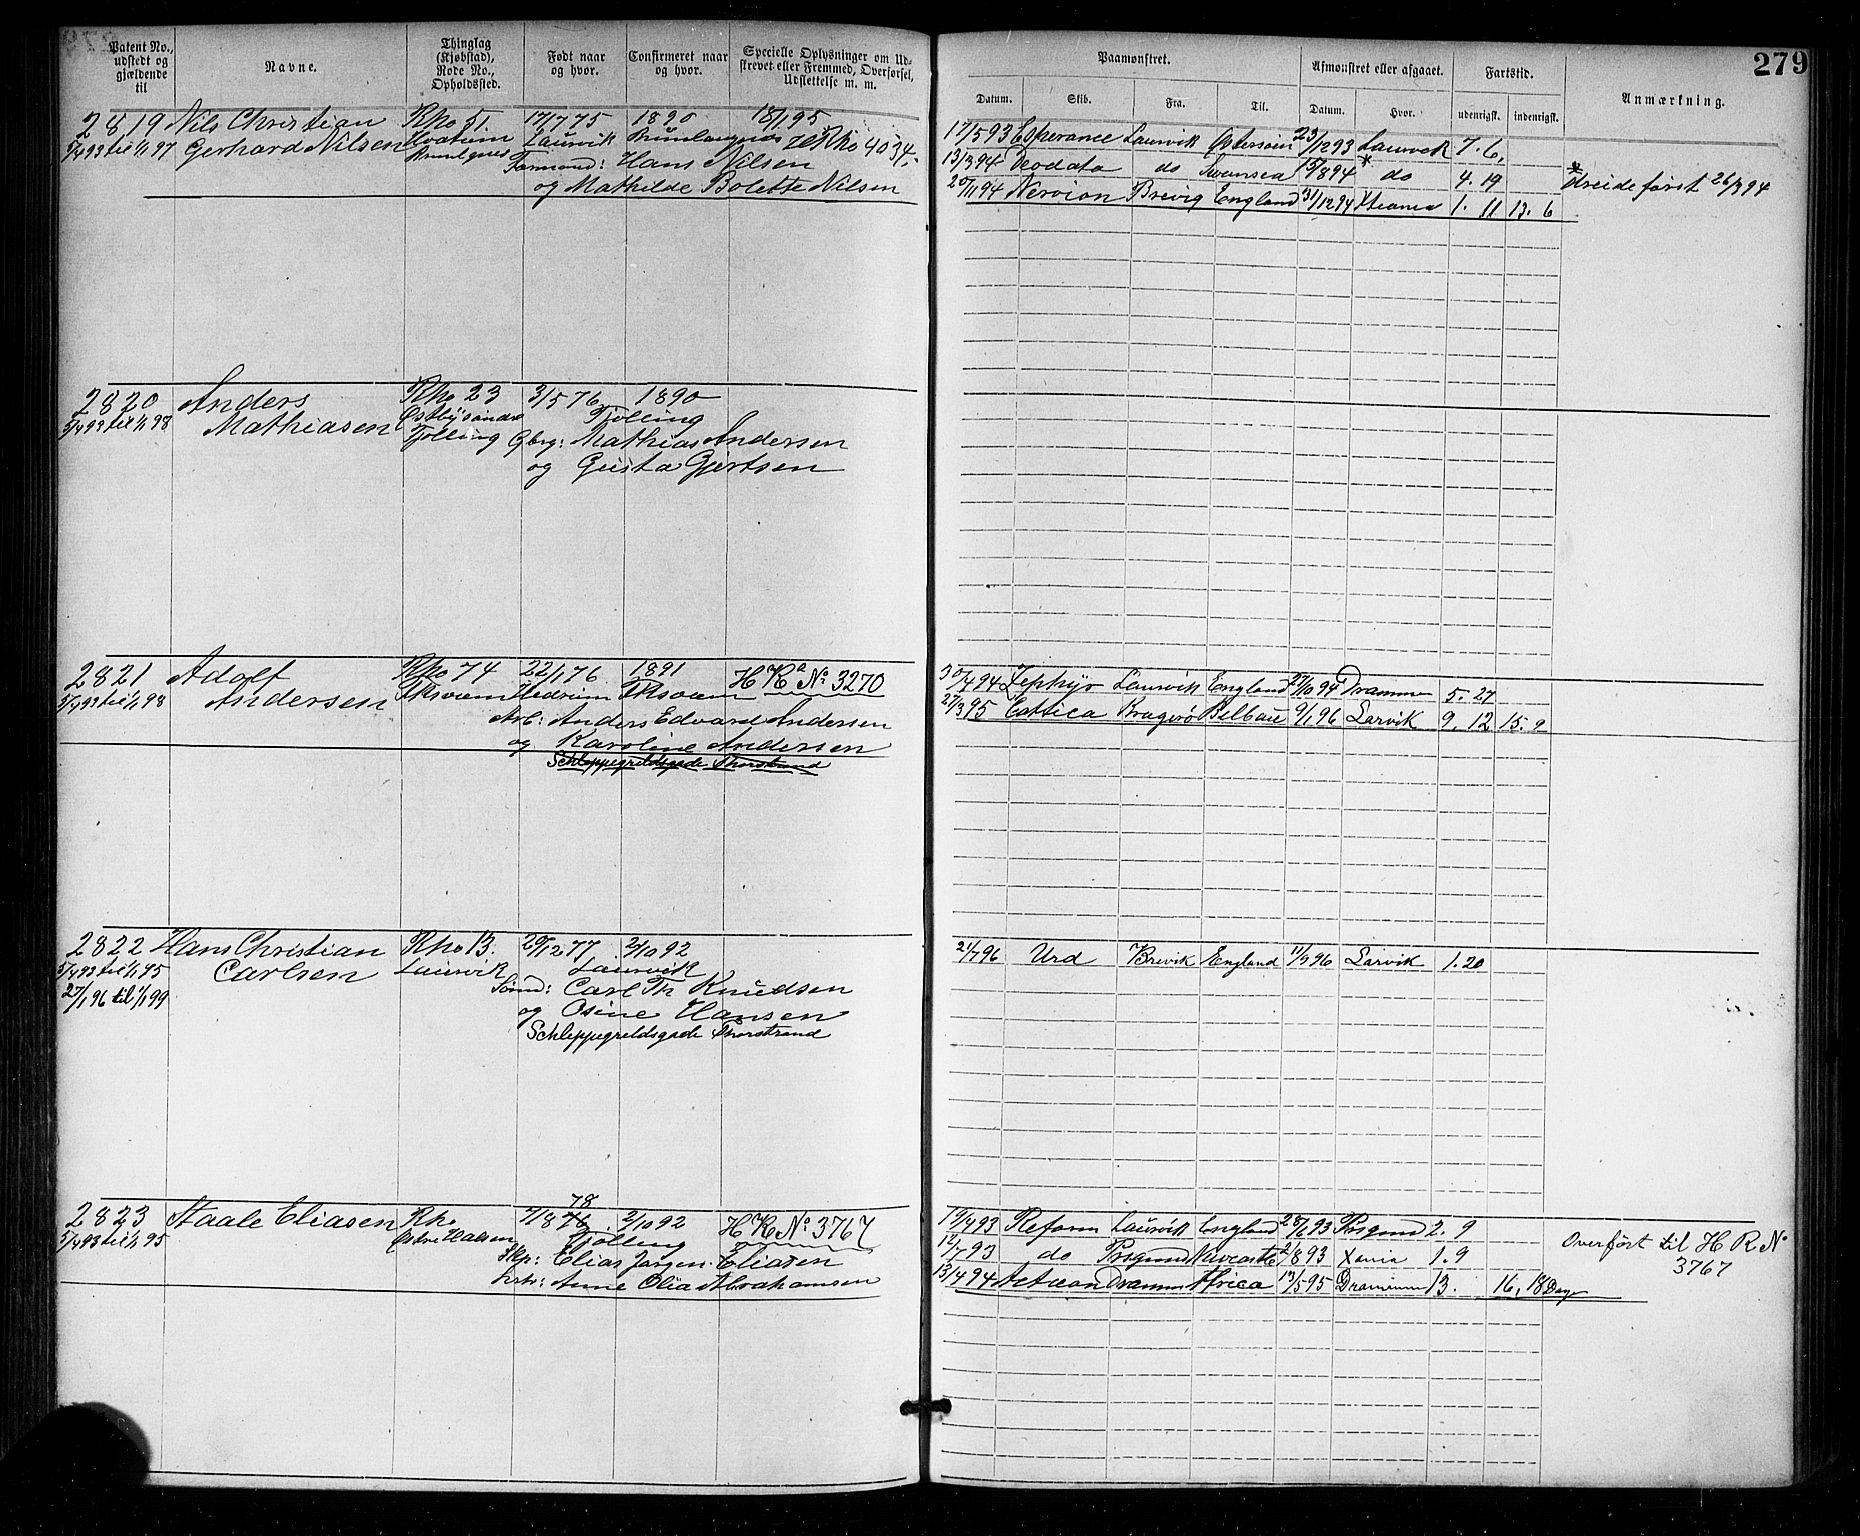 279
Patent No., udstedt og gjældende til
Navne.
Thinglag (Kjøbstad), Rode No., Opholdssted.
Født naar og hvor.
Confirmeret naar og hvor.
Specielle Oplysninger om Udstrevet eller Fremmed, Overførsel, Udslettelse m. m.
Paamønstret.
Afmønstret eller afgaaet.
Fartstid.
Anmærkning.
Datum. Skib. Fra. Til. Datum. Hvor. udenrigsk. indenrigsk.
2819 Nils Christian Rho 51. 17/7 75 1890 18/1 95
5/4 93 til 1/1 97 Gerhard Nilsen Laurvik Brunlagnes 4034
Hans Nilsen
og Mathilde Bolette Nilsen
17/5 93 Esperance Laurvik Østersøen 23/12 93 Laurvik 7. 6,
13/3 94 Deodata do Swansea 15/8 94 * do 4. 19
20/11 94 Nervion Brevig England 31/12 94 1. 11 13. 6
2820 Anders Rho 23 3/5 76 1890
5/4 93 til 1/1 98 Mathiasen Tjølling
Tjølling Gbrg: Mathias Andersen
og Gusta Gjertsen
2821 Adolf Rho 74 22/1 76 1891 H Ka No 3270
5/4 93 til 1/1 98 Andersen Hedrum
Arb: Anders Edvard Andersen
og Karoline Andersen
Schleppegreldsgade Thorstrand
30/4 94 Zephyr Laurvik England Drammen 5. 27
21/3 95 Cattica Kragerø 9/1 96 Larvik 9. 12 15. 9
2822 Hans Christian Rho 13. 29/12 77 2/10 92
5/4 93 til 1/1 95 Carlsen Laurvik Laurvik
27/1 96 til 1/1 99 Sømd: Carl Th Knudsen
og Osine Hansen
Schleppegreldsgade Thorstrand
21/7 96 Urd Brevik England 11/9 96 Larvik 1. 20
78
2823 Staale Eliasen Rho 7/8 76 2/10 92 H K No 3767
5/4 93 til 1/1 95 Østre Halsen Tjølling
Skp: Elias Jørgen Eliasen
Anne Olia Abrahamsen
19/4 93 Reform Laurvik England 28/6 93 Prsgund 2. 9
12/7 93 do Prsgund 8 93 Xania 1. 9
13/4 94 Actæon Dramm Africa 13/5 95 Drammen 13. 16, 18 Dage
Overført til H R No
3767